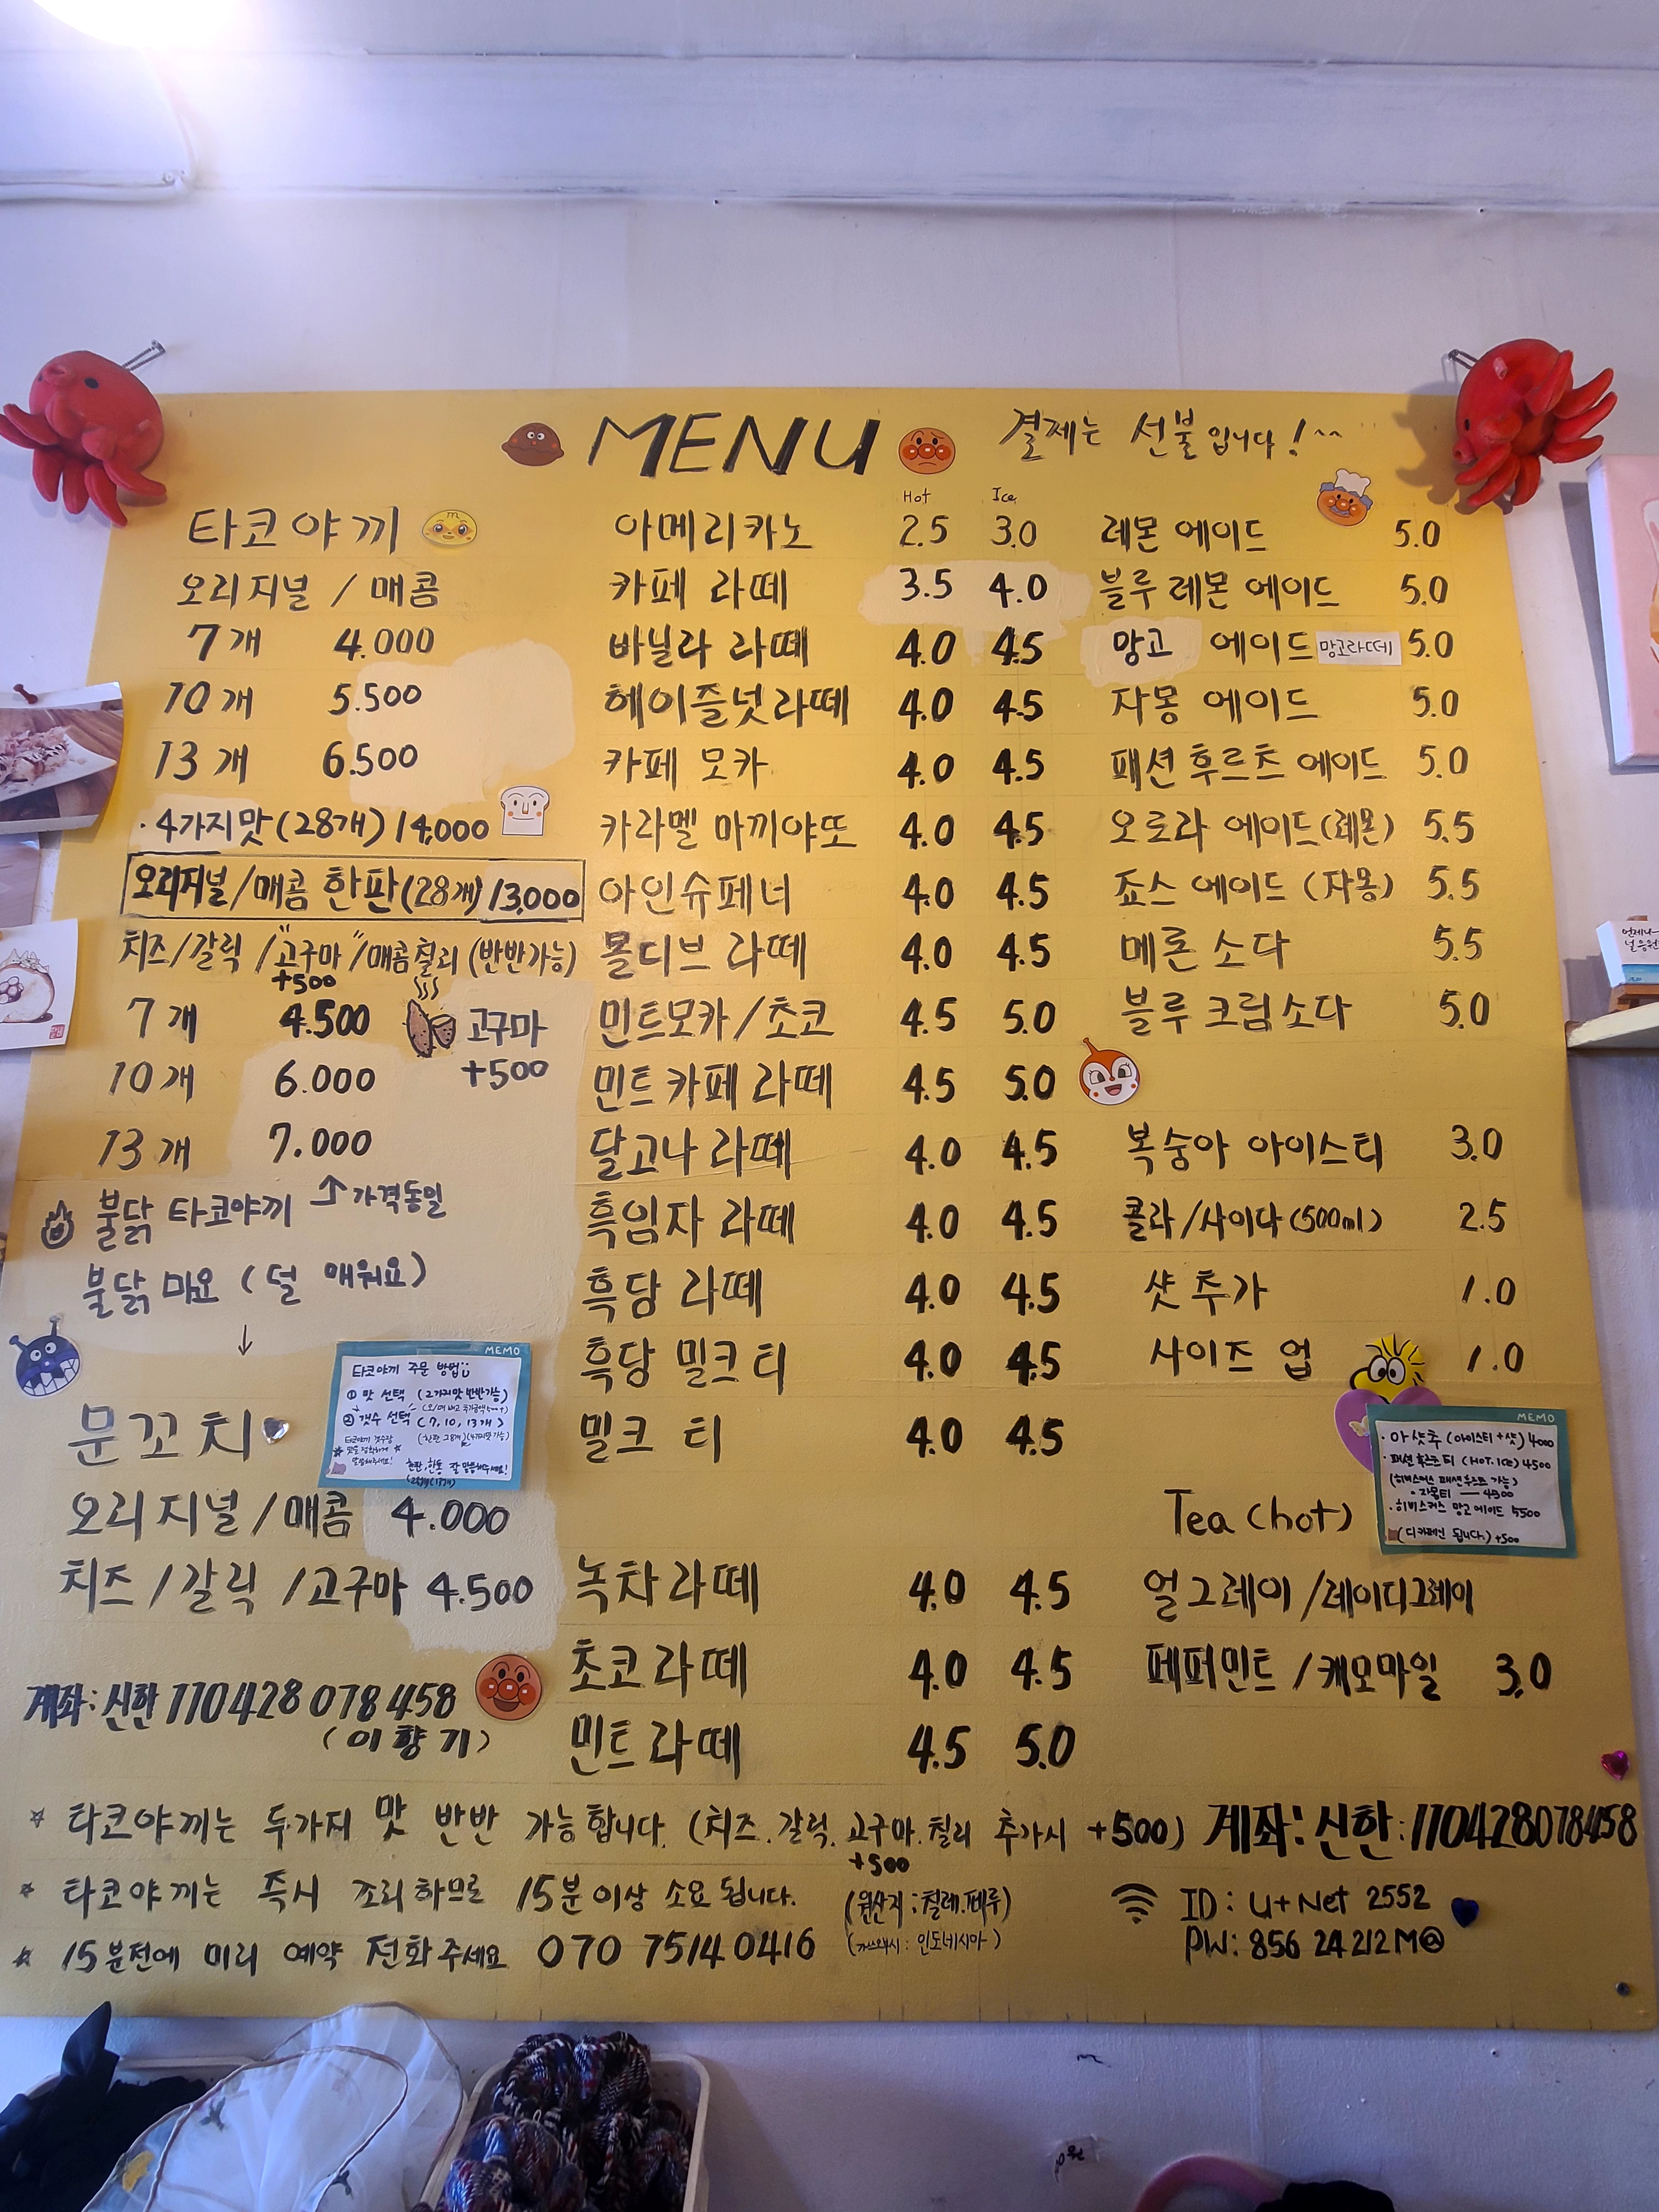 MENU
결제는 선불입니다! ^^
타코야끼
오리지널 / 매콤
7개 4.000
10개 5.500
13개 6.500
· 4가지맛(28개) 14,000
오리지널/매콤 한판(28개) 13,000
치즈/갈릭/"고구마"/매콤칠리 (반반가능)
+500
7개 4.500
고구마
+500
10개 6.000
13개 7.000
불닭 타코야끼 ↑가격동일
불닭 마요 (덜 매워요)
↓
MEMO
타코야끼 주문 방법
① 맛 선택 (2가지맛 반반가능)
② 갯수 선택 (7, 10, 13개)
문꼬치
오리지널/매콤 4.000
치즈/갈릭/고구마 4.500
계좌: 신한 110428078458
(이향기)
Hot Ice
아메리카노 2.5 3.0
카페 라떼 3.5 4.0
바닐라 라떼 4.0 4.5
헤이즐넛라떼 4.0 4.5
카페 모카 4.0 4.5
카라멜 마끼야또 4.0 4.5
아인슈페너 4.0 4.5
몰디브 라떼 4.0 4.5
민트모카/초코 4.5 5.0
민트카페 라떼 4.5 5.0
달고나 라떼 4.0 4.5
흑임자 라떼 4.0 4.5
흑당 라떼 4.0 4.5
흑당 밀크티 4.0 4.5
밀크 티 4.0 4.5
녹차라떼 4.0 4.5
초코라떼 4.0 4.5
민트라떼 4.5 5.0
레몬 에이드 5.0
블루 레몬 에이드 5.0
망고 에이드 망고라떼 5.0
자몽 에이드 5.0
패션후르츠 에이드 5.0
오로라 에이드(레몬) 5.5
죠스 에이드 (자몽) 5.5
메론 소다 5.5
블루 크림소다 5.0
복숭아 아이스티 3.0
콜라/사이다(500ml) 2.5
샷 추가 1.0
사이즈 업 1.0
MEMO
· 아샷추 (아이스티+샷) 4000
· 패션후르츠 티 (HOT. ICE) 4500
(히비스커스 패션후르츠 가능)
· 히비스커스 망고에이드 5500
(디카페인 됩니다.) +500
Tea (hot)
얼그레이/레이디그레이
페퍼민트/캐모마일 3.0
☆ 타코야끼는 두가지 맛 반반 가능합니다. (치즈. 갈릭. 고구마. 칠리 추가시 +500) 계좌: 신한: 110428078458
+500
* 타코야끼는 즉시 조리하므로 15분이상 소요 됩니다. (원산지: 칠레.페루)
(가쓰오부시: 인도네시아)
☆ 15분전에 미리 예약 전화주세요 070 7514 0416
ID: U+Net 2552
PW: 856 24 212M@